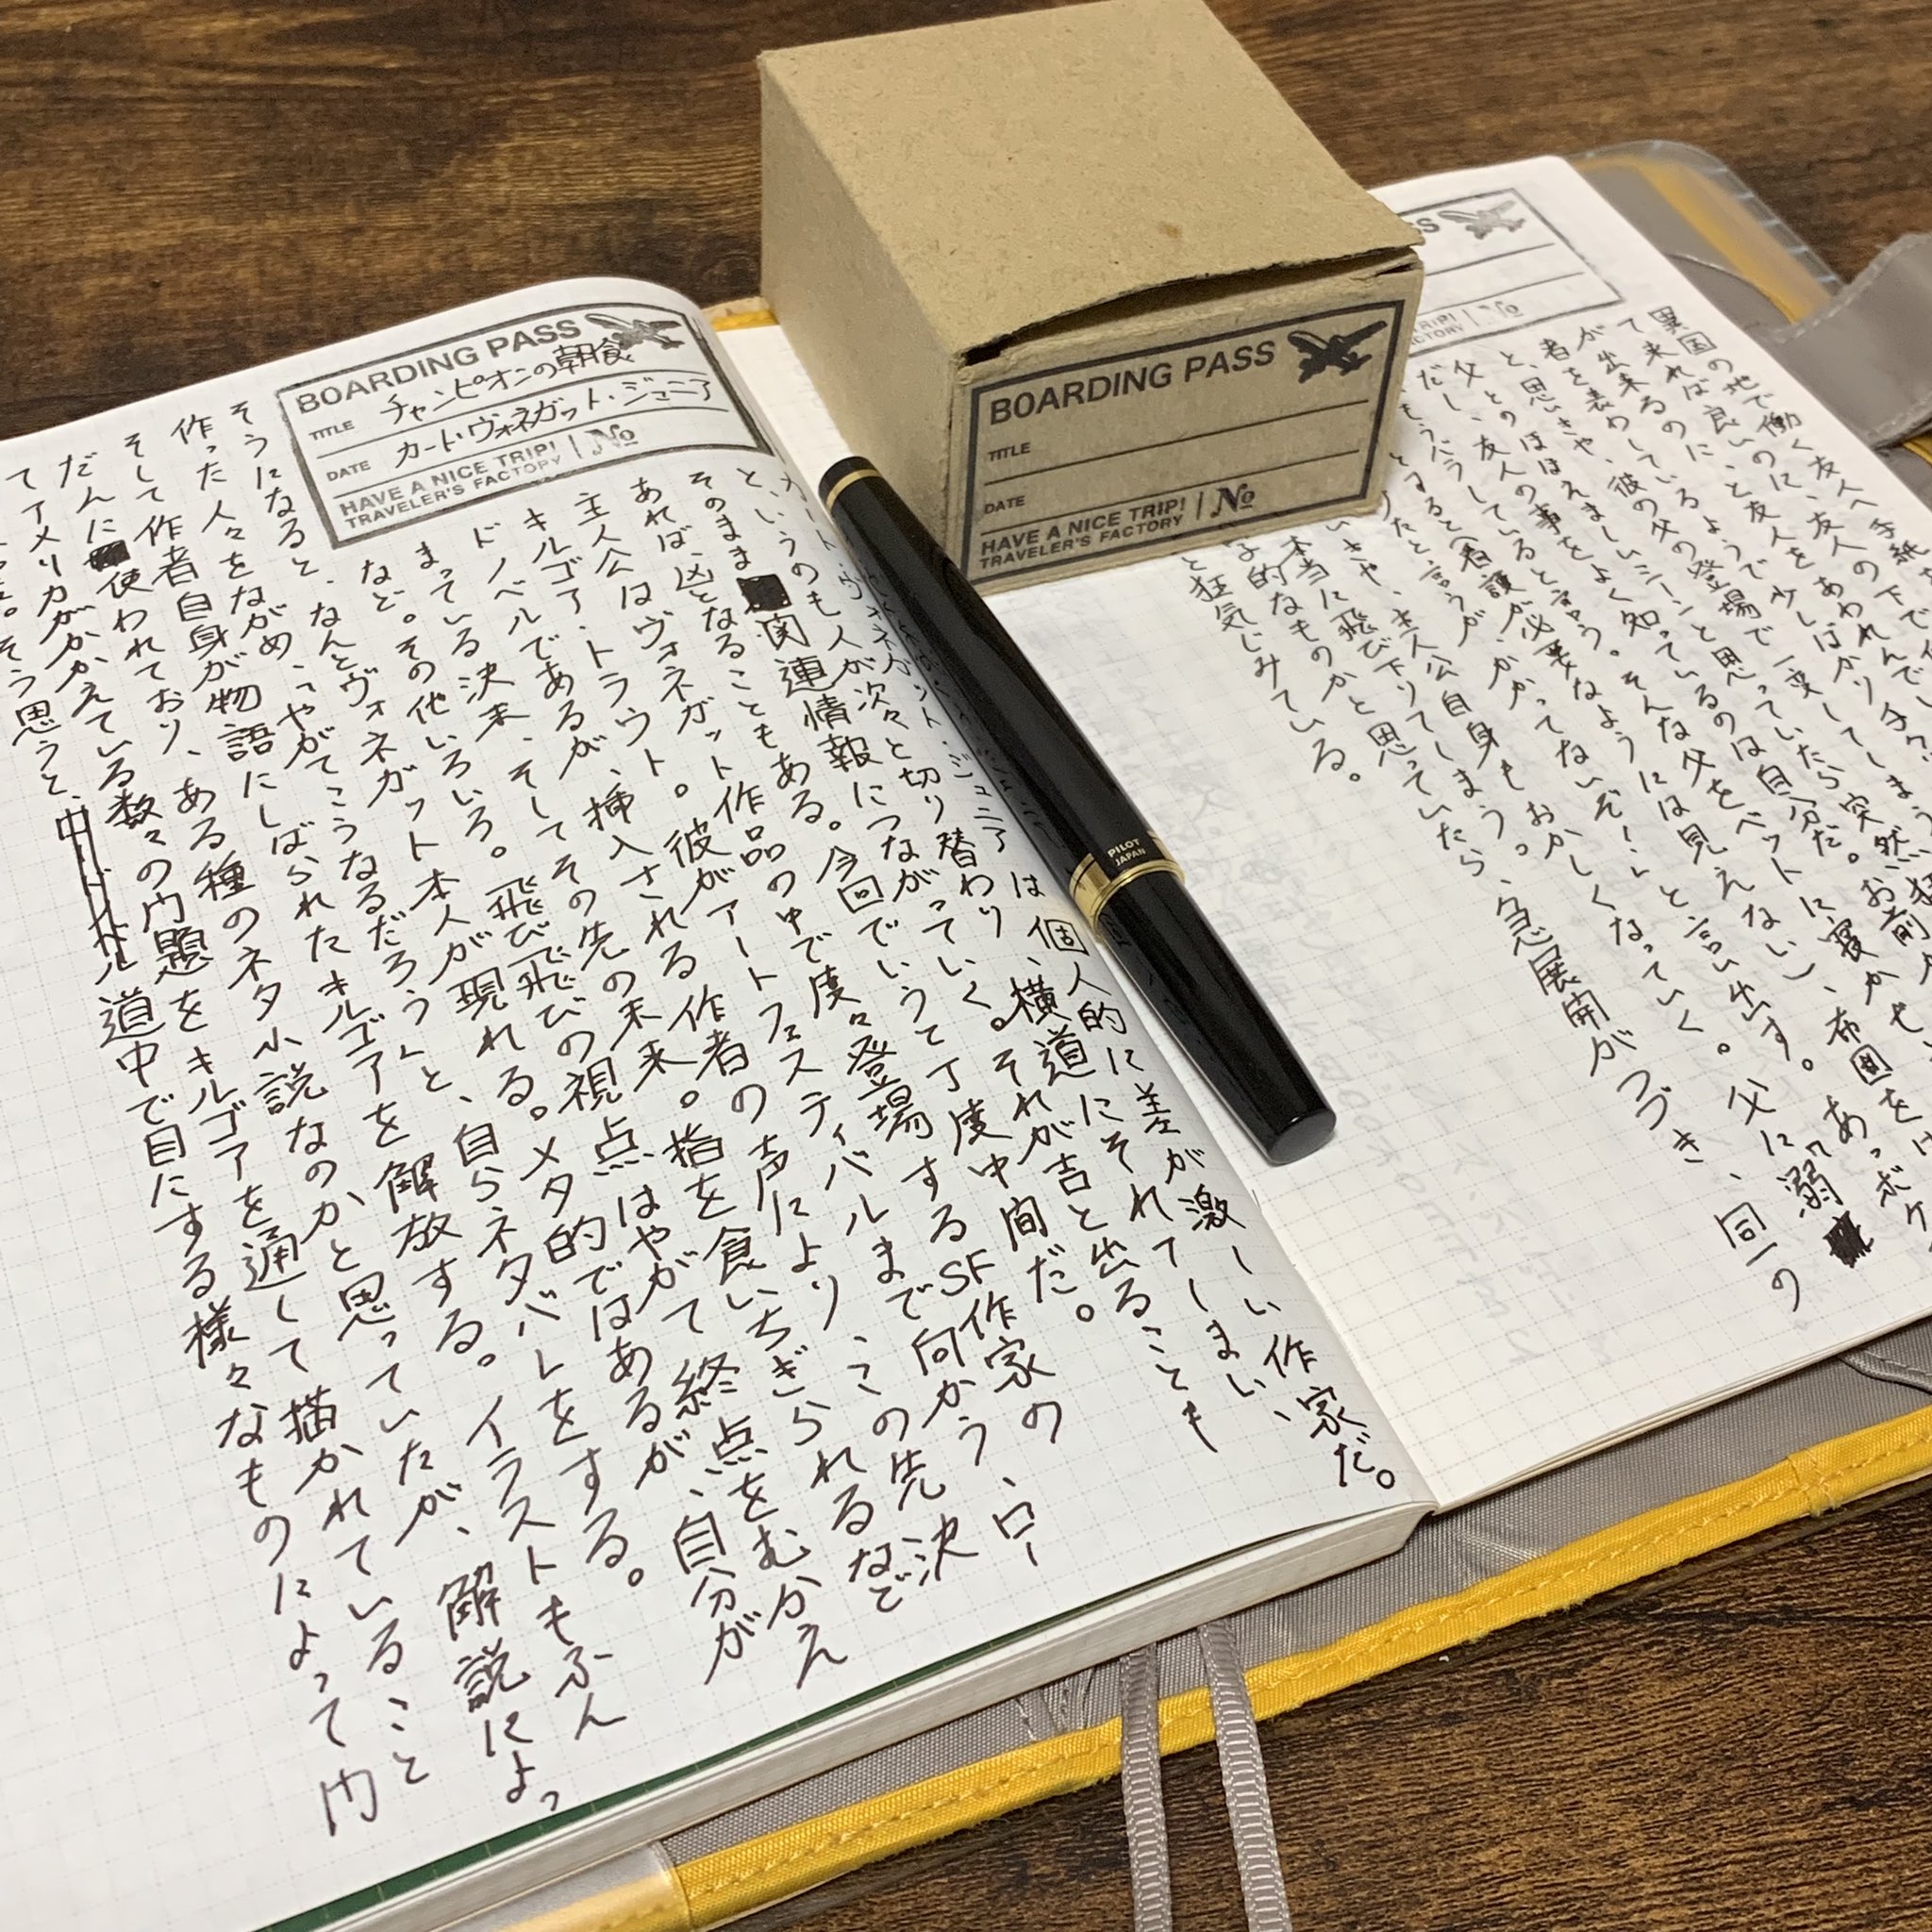 BOARDING PASS
TITLE チャンピオンの朝食
DATE カート・ヴォネガット・ジュニア
HAVE A NICE TRIP! | No
TRAVELER'S FACTORY
は個人的に差が激しい作家だ。
というのも人が次々と切り替わり、横道にそれてしまい、
そのまま関連情報につながっていく。それが吉と出ることも
あれば、凶となることもある。今回でいうて丁度中間だ。
主人公はヴォネガット作品の中で度々登場するSF作家の
キルゴア・トラウト。彼がアートフェスティバルまで向かう、ロー
ドノベルであるが、挿入される作者の声により、この先決
まっている決末、そしてその先の未来。指を食いちぎられるなど
など。その他いろいろ。飛び飛びの視点はやがて終点をむかえ
そうになると、なんとヴォネガット本人が現れる。メタ的ではあるが、自分が
作った人々をながめ、「やがてこうなるだろう」と、自らネタバレをする。
そして作者自身が物語にしばられたキルゴアを解放する。イラストもふん
だんに使われており、ある種のネタ小説なのかと思っていたが、解説によっ
てアメリカがかかえている数々の内題をキルゴアを通して描かれていること
そう思うと、道中で目にする様々なものによって内
BOARDING PASS
TITLE
DATE
HAVE A NICE TRIP! | No
TRAVELER'S FACTORY
PILOT
JAPAN
異国の地で働く友人へ手紙
て来れば良いのに、友人の下で
が出来るのに、と友人をあわれんで
者を表わしているようで少しばかり
と、思いきや、彼の父の登場で一変してしまう
父とのほほえましいシーンと思っていたら突然お前
だし、友人の事をよく知っているのは自分だ。
と言う。そんな父をベットに寝かせ、
とすると(看護が必要なようには見えない)、布団を
たと言うが「かかってないぞ!」と言い出す。父に溺
いきや、主人公自身もおかしくなっていく。
本当に飛び下りてしまう。急展開がつづき、同一の
的なものかと思っていたら、
と狂気じみている。